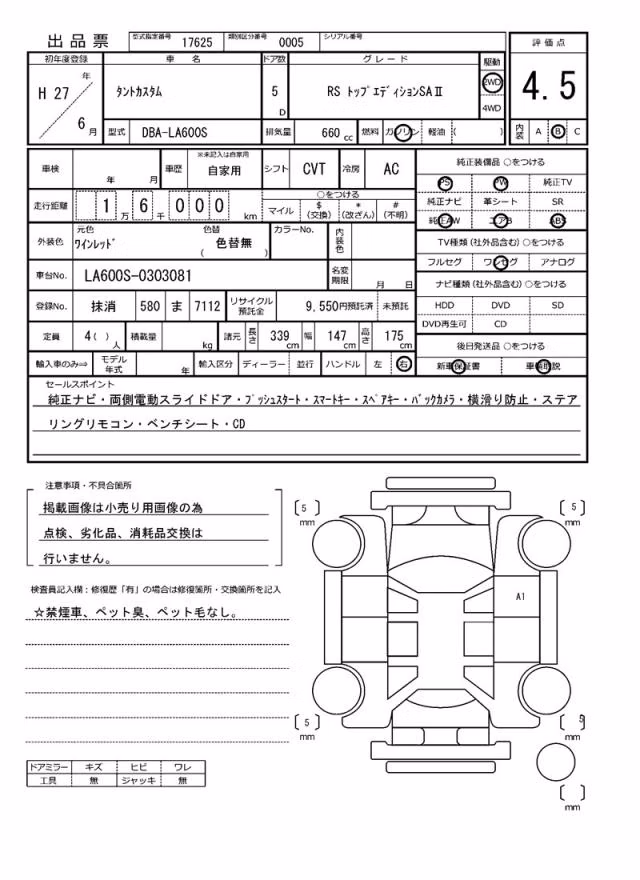 出品票 型式指定番号 17625 類別区分番号 0005 シリアル番号
初年度登録 車名 ドア数 グレード 駆動 評価点
H 27 年 6 月 タントカスタム 5 D RS トップエディションSAⅡ 2WD 4WD 4.5
型式 DBA-LA600S 排気量 660 cc 燃料 ガソリン 軽油 ( ) 内装 A B C
車検 年 月 車歴 ※未記入は自家用 自家用 シフト CVT 冷房 AC
走行距離 1 万 6 千 0 0 0 km ○をつける
マイル $ (交換) * (改ざん) # (不明)
外装色 元色 ワインレッド 色替 ( 色替無 ) カラーNo. 内装色
車台No. LA600S-0303081 名変期限 月 日
登録No. 抹消 580 ま 7112 リサイクル預託金 9,550円預託済 未預託
定員 4( ) 人 積載量 kg 諸元 長さ 339 cm 幅 147 cm 高さ 175 cm
輸入車のみ⇒ モデル年式 年 輸入区分 ディーラー 並行 ハンドル 左 右
純正装備品 ○をつける
PS PW 純正TV
純正ナビ 革シート SR
純正AW エアB ABS
TV種類 (社外品含む) ○をつける
フルセグ ワンセグ アナログ
ナビ種類 (社外品含む) ○をつける
HDD DVD SD
DVD再生可 CD
後日発送品 ○をつける
新車保証書 車輌取説
セールスポイント
純正ナビ・両側電動スライドドア・プッシュスタート・スマートキー・スペアキー・バックカメラ・横滑り防止・ステア
リングリモコン・ベンチシート・CD
注意事項・不具合箇所
掲載画像は小売り用画像の為
点検、劣化品、消耗品交換は
行いません。
検査員記入欄：修復歴「有」の場合は修復箇所・交換箇所を記入
☆禁煙車、ペット臭、ペット毛なし。
ドアミラー キズ ヒビ ワレ
工具 無 ジャッキ 無
[ 5 ] mm
[ 5 ] mm
A1
[ 5 ] mm
[ 5 ] mm
[ ] mm